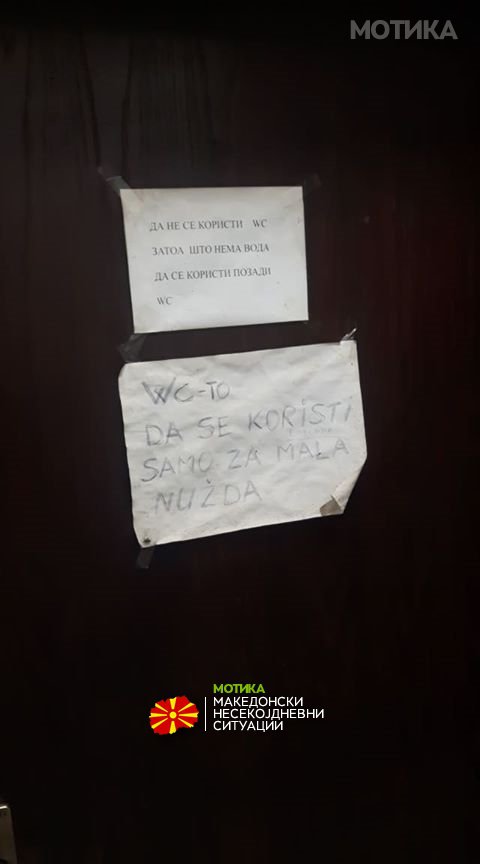 МОТИКА
ДА НЕ СЕ КОРИСТИ WC
ЗАТОА ШТО НЕМА ВОДА
ДА СЕ КОРИСТИ ПОЗАДИ
WC
WC-TO
DA SE KORiSTi
SAMO ZA MALA
NUŽDA
МОТИКА
МАКЕДОНСКИ
НЕСЕКОЈДНЕВНИ
СИТУАЦИИ